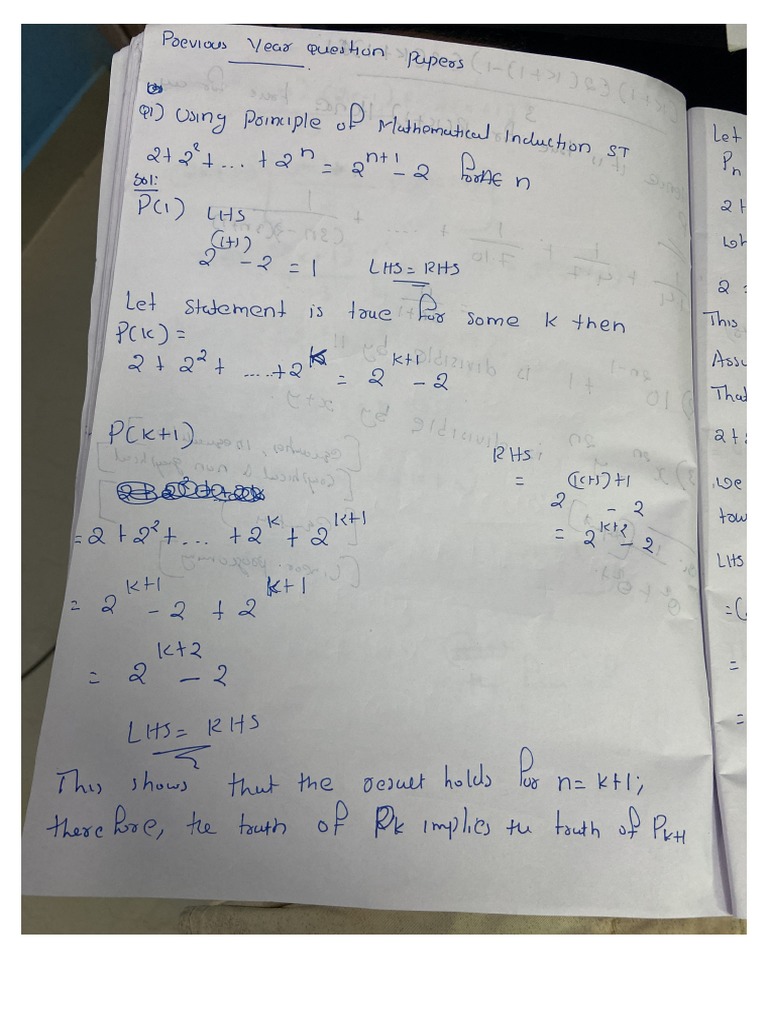 Previous Year question Papers
Q1) Using Principle of Mathematical Induction ST
2 + 2² + ... + 2ⁿ = 2ⁿ⁺¹ - 2 n
Sol:
P(1) LHS
2⁽¹⁺¹⁾ - 2 = 1 LHS = RHS
Let statement is true for some k then
P(k) =
2 + 2² + ..... + 2ᵏ = 2ᵏ⁺¹ - 2
P(k+1)
= 2 + 2² + ... + 2ᵏ + 2ᵏ⁺¹
= 2ᵏ⁺¹ - 2 + 2ᵏ⁺¹
= 2ᵏ⁺² - 2
LHS = RHS
RHS
= 2⁽ᵏ⁺¹⁾⁺¹ - 2
= 2ᵏ⁺² - 2
This shows that the result holds for n = k+1;
therefore, the truth of Pk implies the truth of Pk+1
Let
Pn
2+
2
This
Assu
That
2+
we
LHS
=
=
=